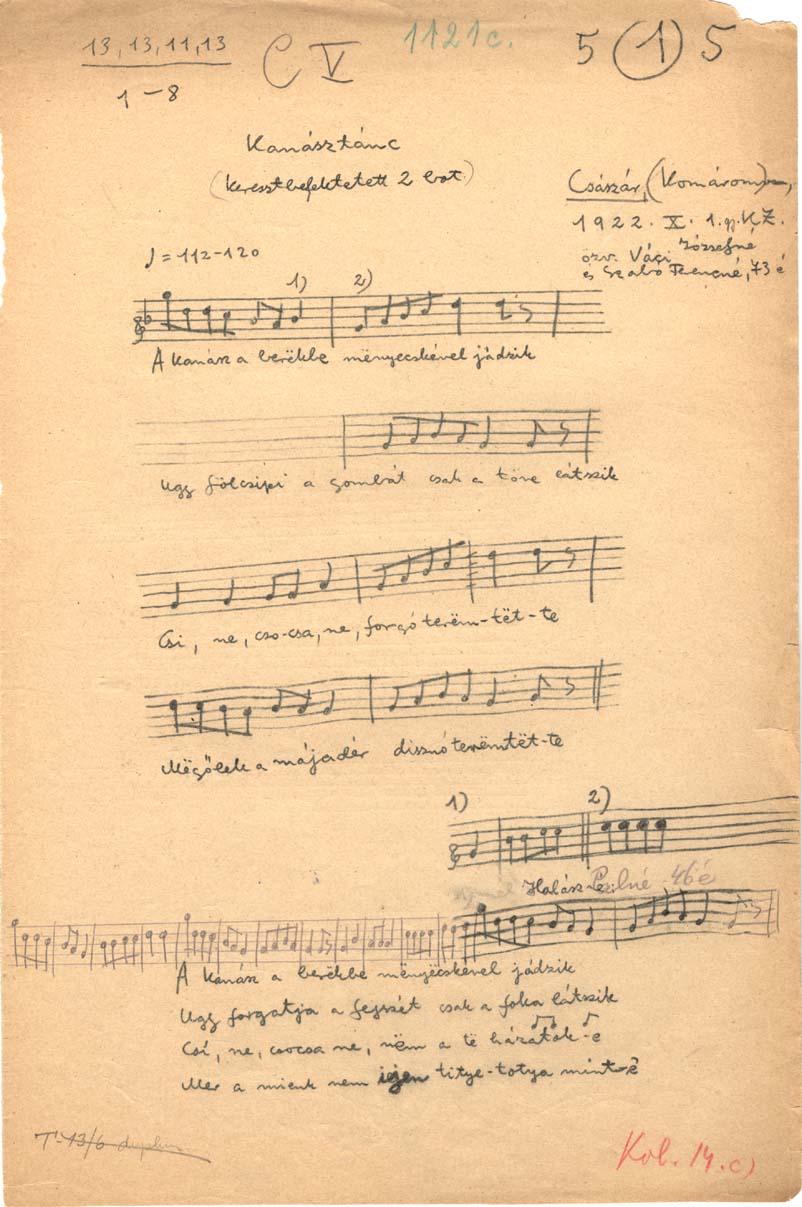 13, 13, 11, 13
1 – 8
C V
1121c.
5 (1) 5
Kanásztánc
(keresztbefektetett 2 bot.)
Császár, (Komárom),
1922. X. 1. gy. K Z.
özv. Vági Józsefné
és Szabó Ferencné, 73 é
♩ = 112–120
1) 2)
A kanász a berëkbe mënyecskével jádzik
Ugy fölcsipi a gombát csak a töve látszik
Csi, ne, cso-csa, ne, forgó terëm-tët-te
Mëgölek a májadér disznó terëmtët-te
1) 2)
Halász Pálné 46 é
A kanász a berëkbe mënyëcskével jádzik
Ugy forgatja a fejszét csak a foka látszik
Csí, ne, csocsa ne, nëm a të házatok-e
Mer a mienk nem ijen titye-totya mint-ë
T-13/6
Kob. 14. c)